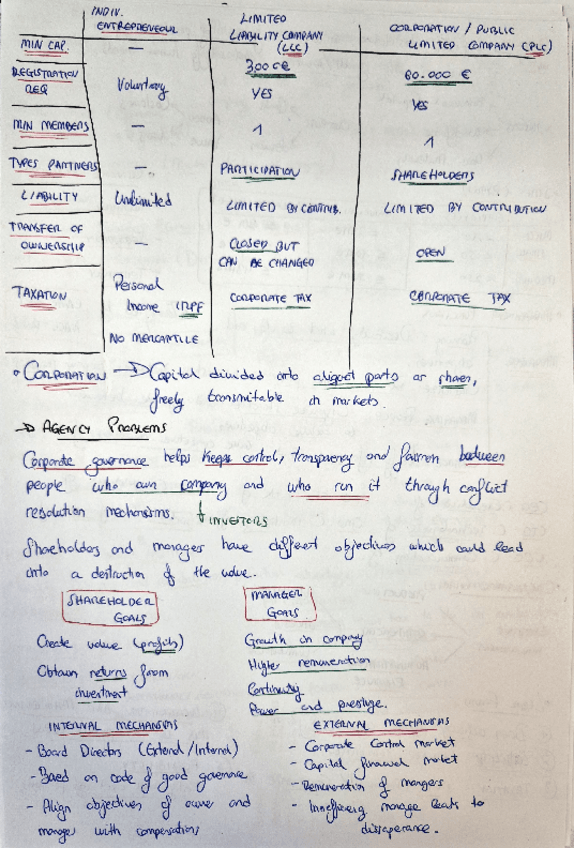 INDIV. ENTREPRENEUR
LIMITED LIABILITY COMPANY (LCC)
CORPORATION / PUBLIC LIMITED COMPANY (PLC)
MIN CAP. — 300 €E 60.000 €
REGISTRATION REQ Voluntary YES YES
MIN MEMBERS — 1 1
TYPES PARTNERS — PARTICIPATION SHAREHOLDERS
LIABILITY Unlimited LIMITED BY CONTRIB. LIMITED BY CONTRIBUTION
TRANSFER OF OWNERSHIP — CLOSED BUT CAN BE CHANGED OPEN
TAXATION Personal Income IRPF CORPORATE TAX CORPORATE TAX
NO MERCANTILE
° CORPORATION → Capital divided into parts or shares,
freely transmitable in markets.
→ AGENCY PROBLEMS
Corporate governance helps keeps control, transparency and between
people who own company and who run it through conflict
resolution mechanisms. ↓ INVESTORS
Shareholders and managers have different objectives which could lead
into a destruction of the value.
SHAREHOLDER GOALS
MANAGER GOALS
Create value (profits)
Growth in company
Obtain returns from
Higher remuneration
investment
Continuity
Power and prestige.
INTERNAL MECHANISMS
EXTERNAL MECHANISMS
- Board Directors (External/Internal)
- Corporate Control market
- Capital financial market
- Based on code of good governance
- Remuneration of mangers
- Align objectives of owner and
- manage leads to
manager with compensations
dissaperance.